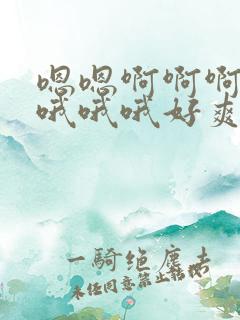 嗯嗯啊啊啊
哦哦哦好爽
一騎绝塵去
未经同意禁止转载